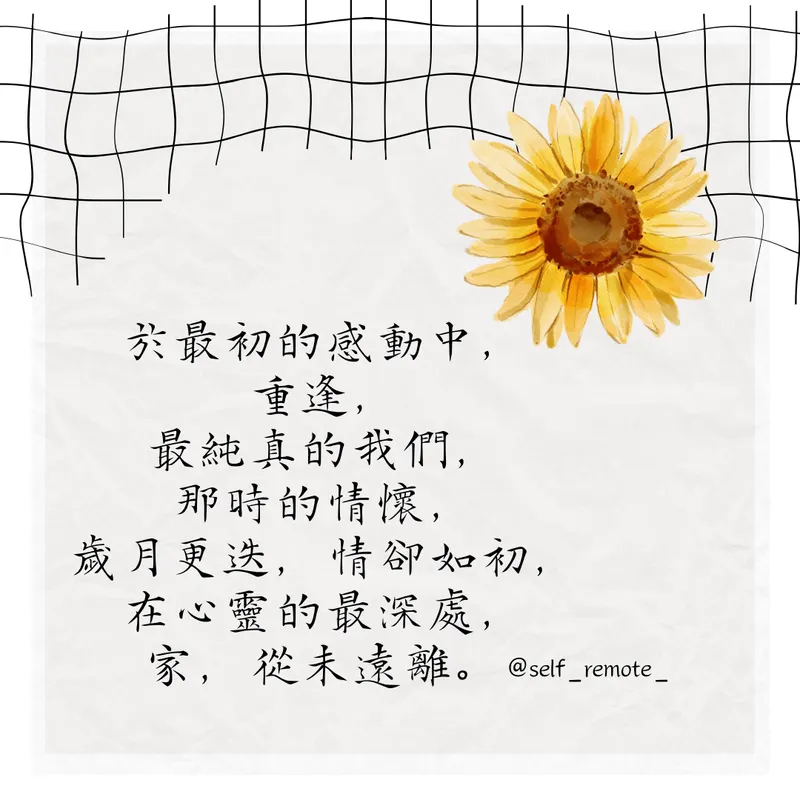 於最初的感動中，
重逢，
最純真的我們，
那時的情懷，
歲月更迭，情卻如初，
在心靈的最深處，
家，從未遠離。 @self_remote_